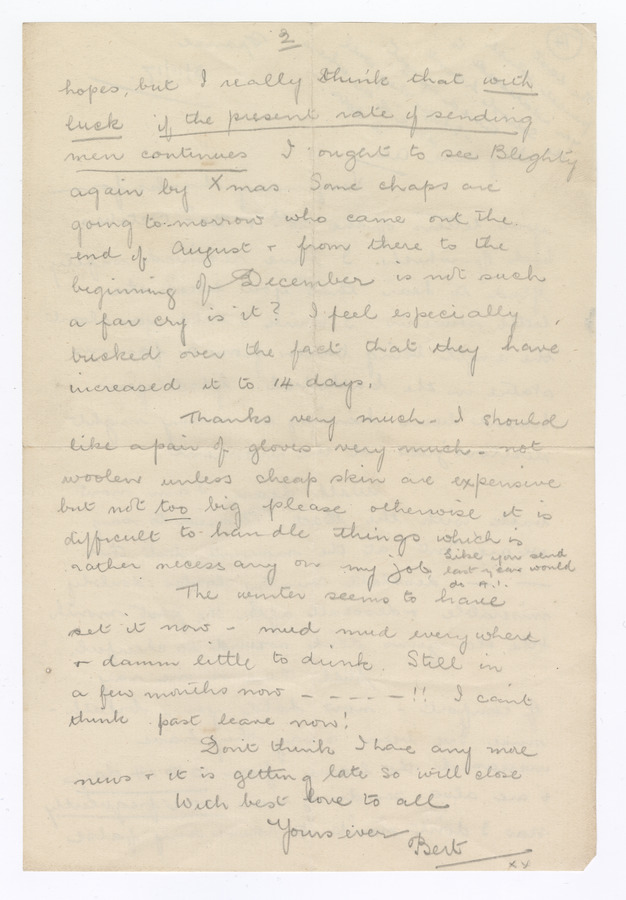 2
hopes, but I really think that with
luck if the present rate of sending
men continues I ought to see Blighty
again by Xmas. Some chaps are
going to-morrow who came out the
end of August + from there to the
beginning of December is not such
a far cry is it? I feel especially
bucked over the fact that they have
increased it to 14 days.
Thanks very much - I should
like a pair of gloves very much - not
woolen unless cheap skin are expensive
but not too big please otherwise it is
difficult to handle things which is
rather necessary on my job, like you send
last year would
do A.1.
The winter seems to have
set it now - mud mud everywhere
+ damm little to drink. Still in
a few months now - - - - - !! I can't
think past leave now!
Don't think I have any more
news + it is getting late so will close
With best love to all
Yours ever
Bert
xx